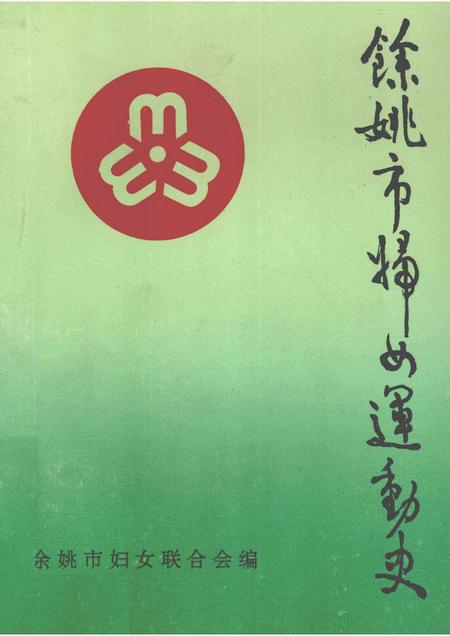 餘姚市婦女運動史
余姚市妇女联合会编